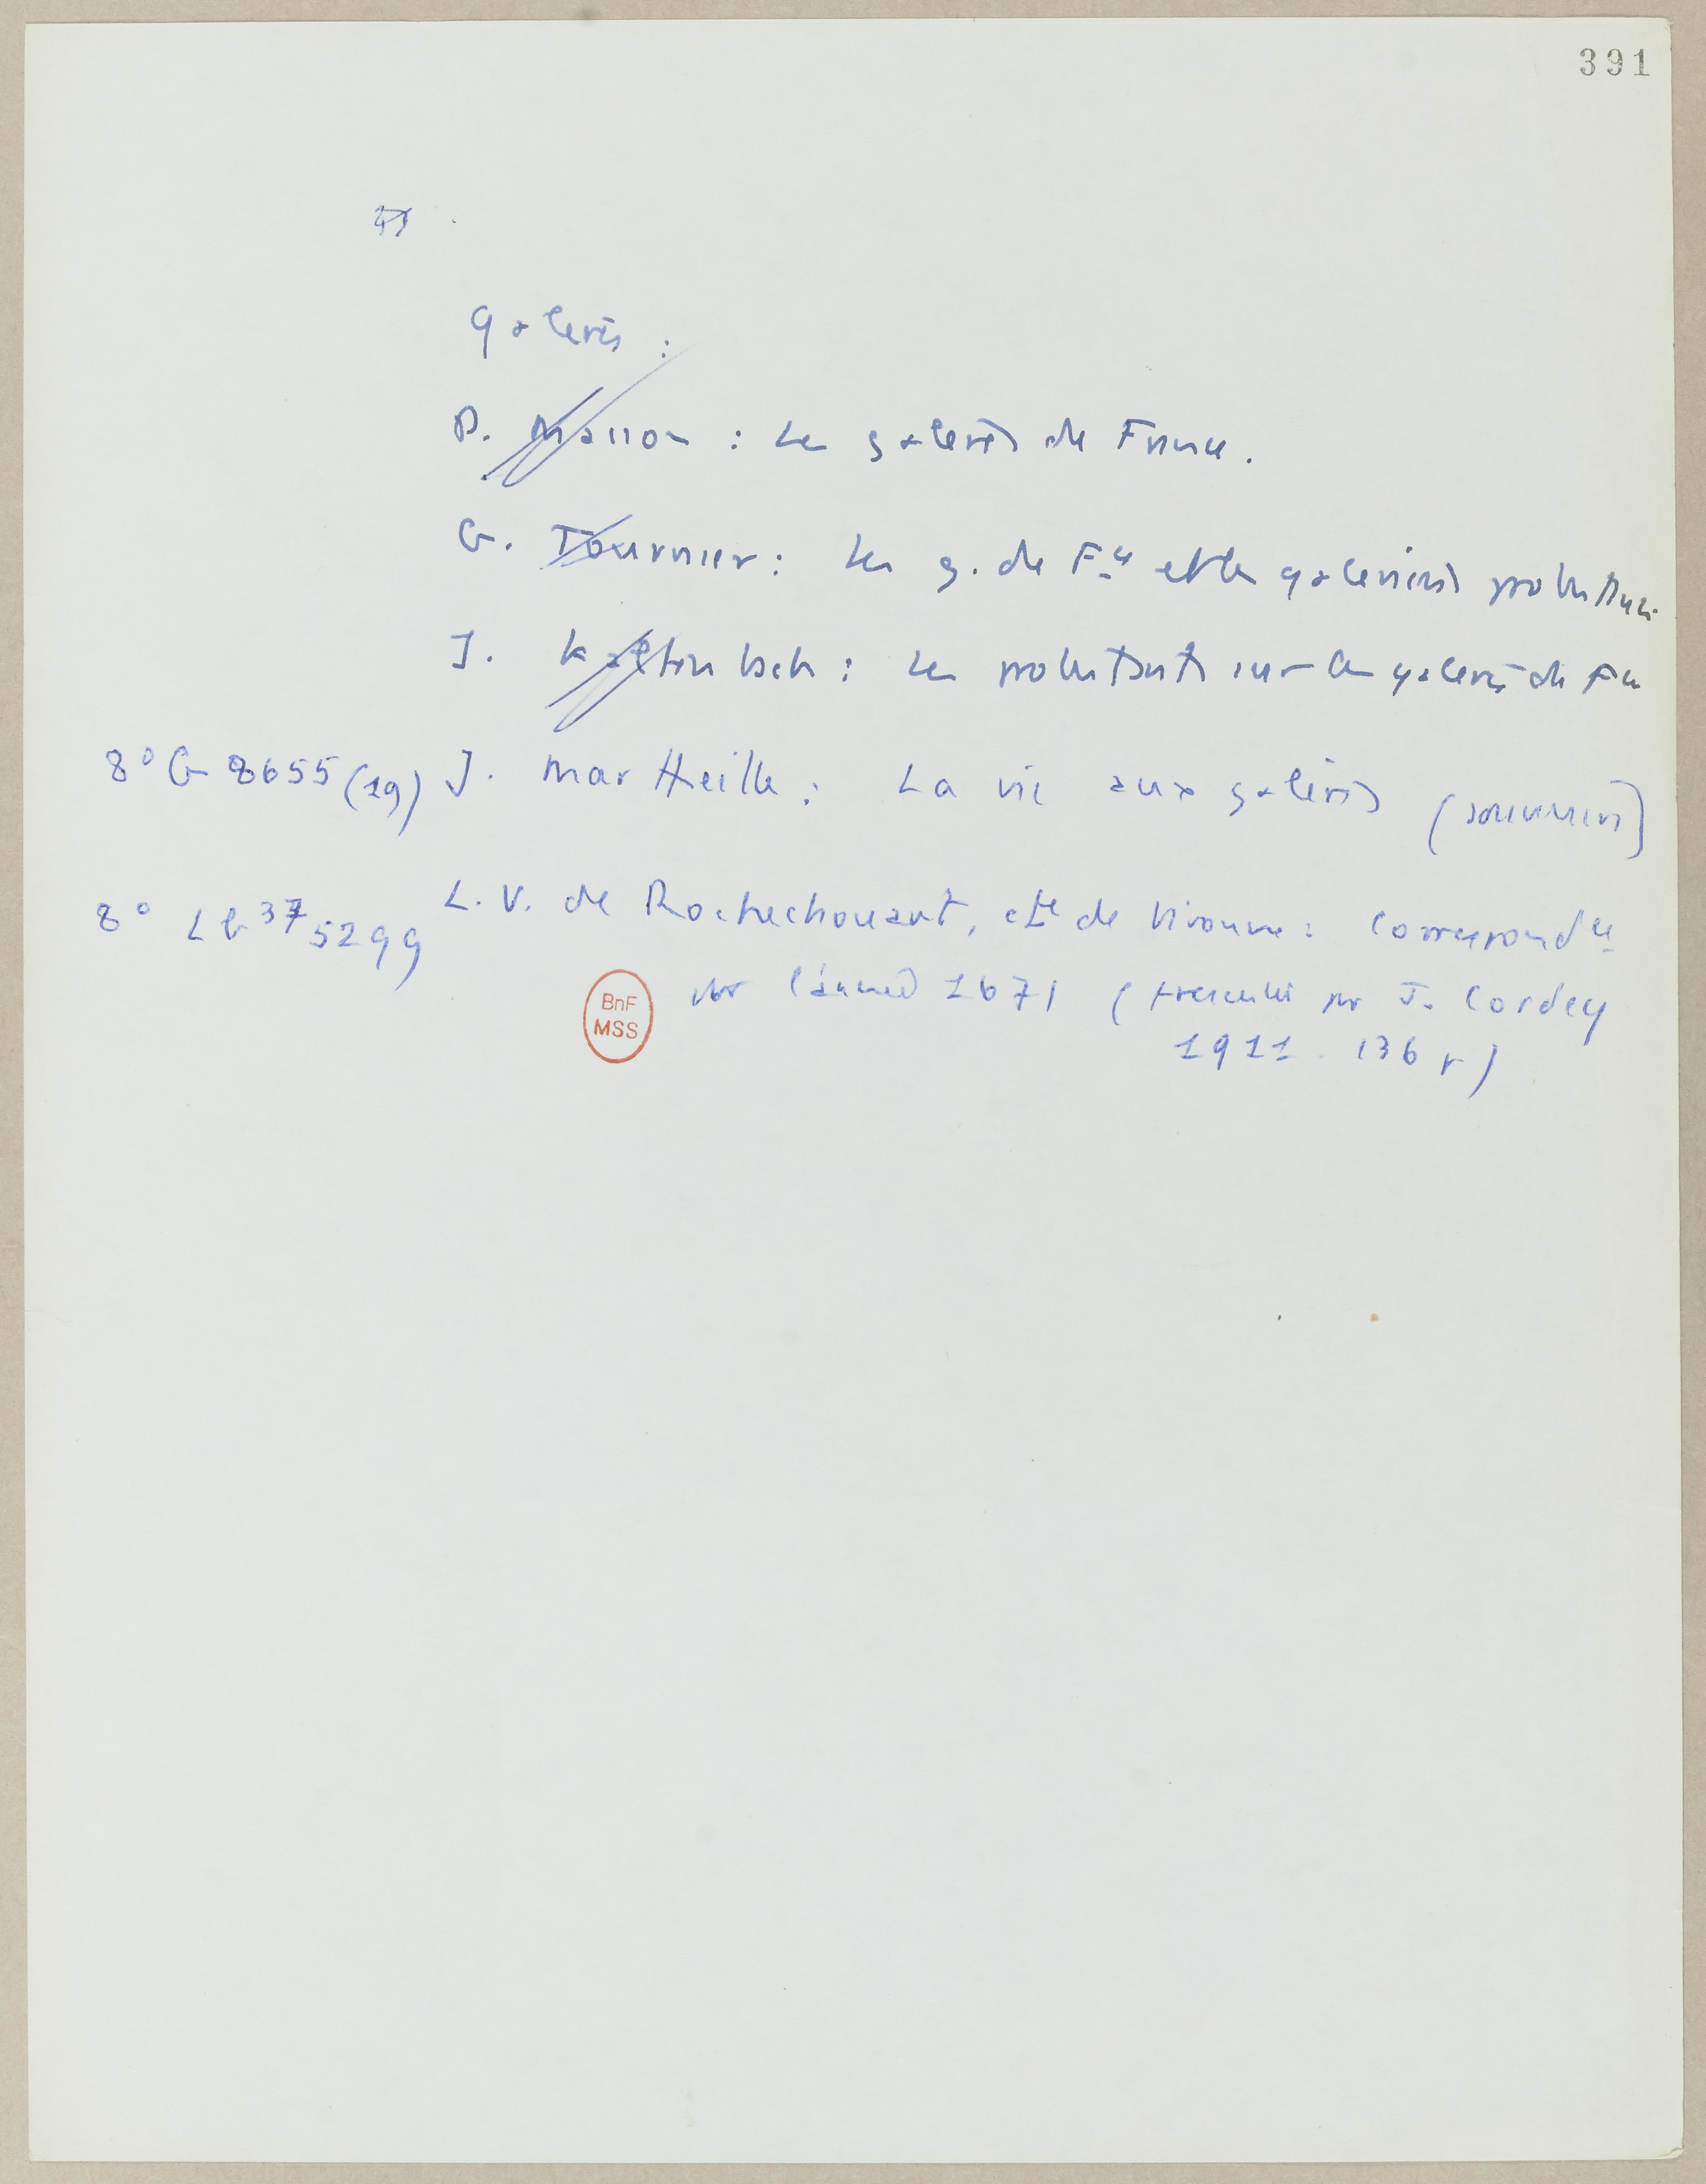 391
galères :
P. Masson : Les galères de France.
G. Tournier : Les g. de Fce et les galériens protestants
J. Kaltenbach : Les protestants sur les galères de Fce
8° G 8655 (19) J. Marteille : La vie aux galères (souvenirs)
8° Lb 37 5299 L. V. de Rochechouart, cte de Vivonne : Correspondce
BnF
MSS
pour l'année 1671 ( par J. Cordey
1911 136 p)